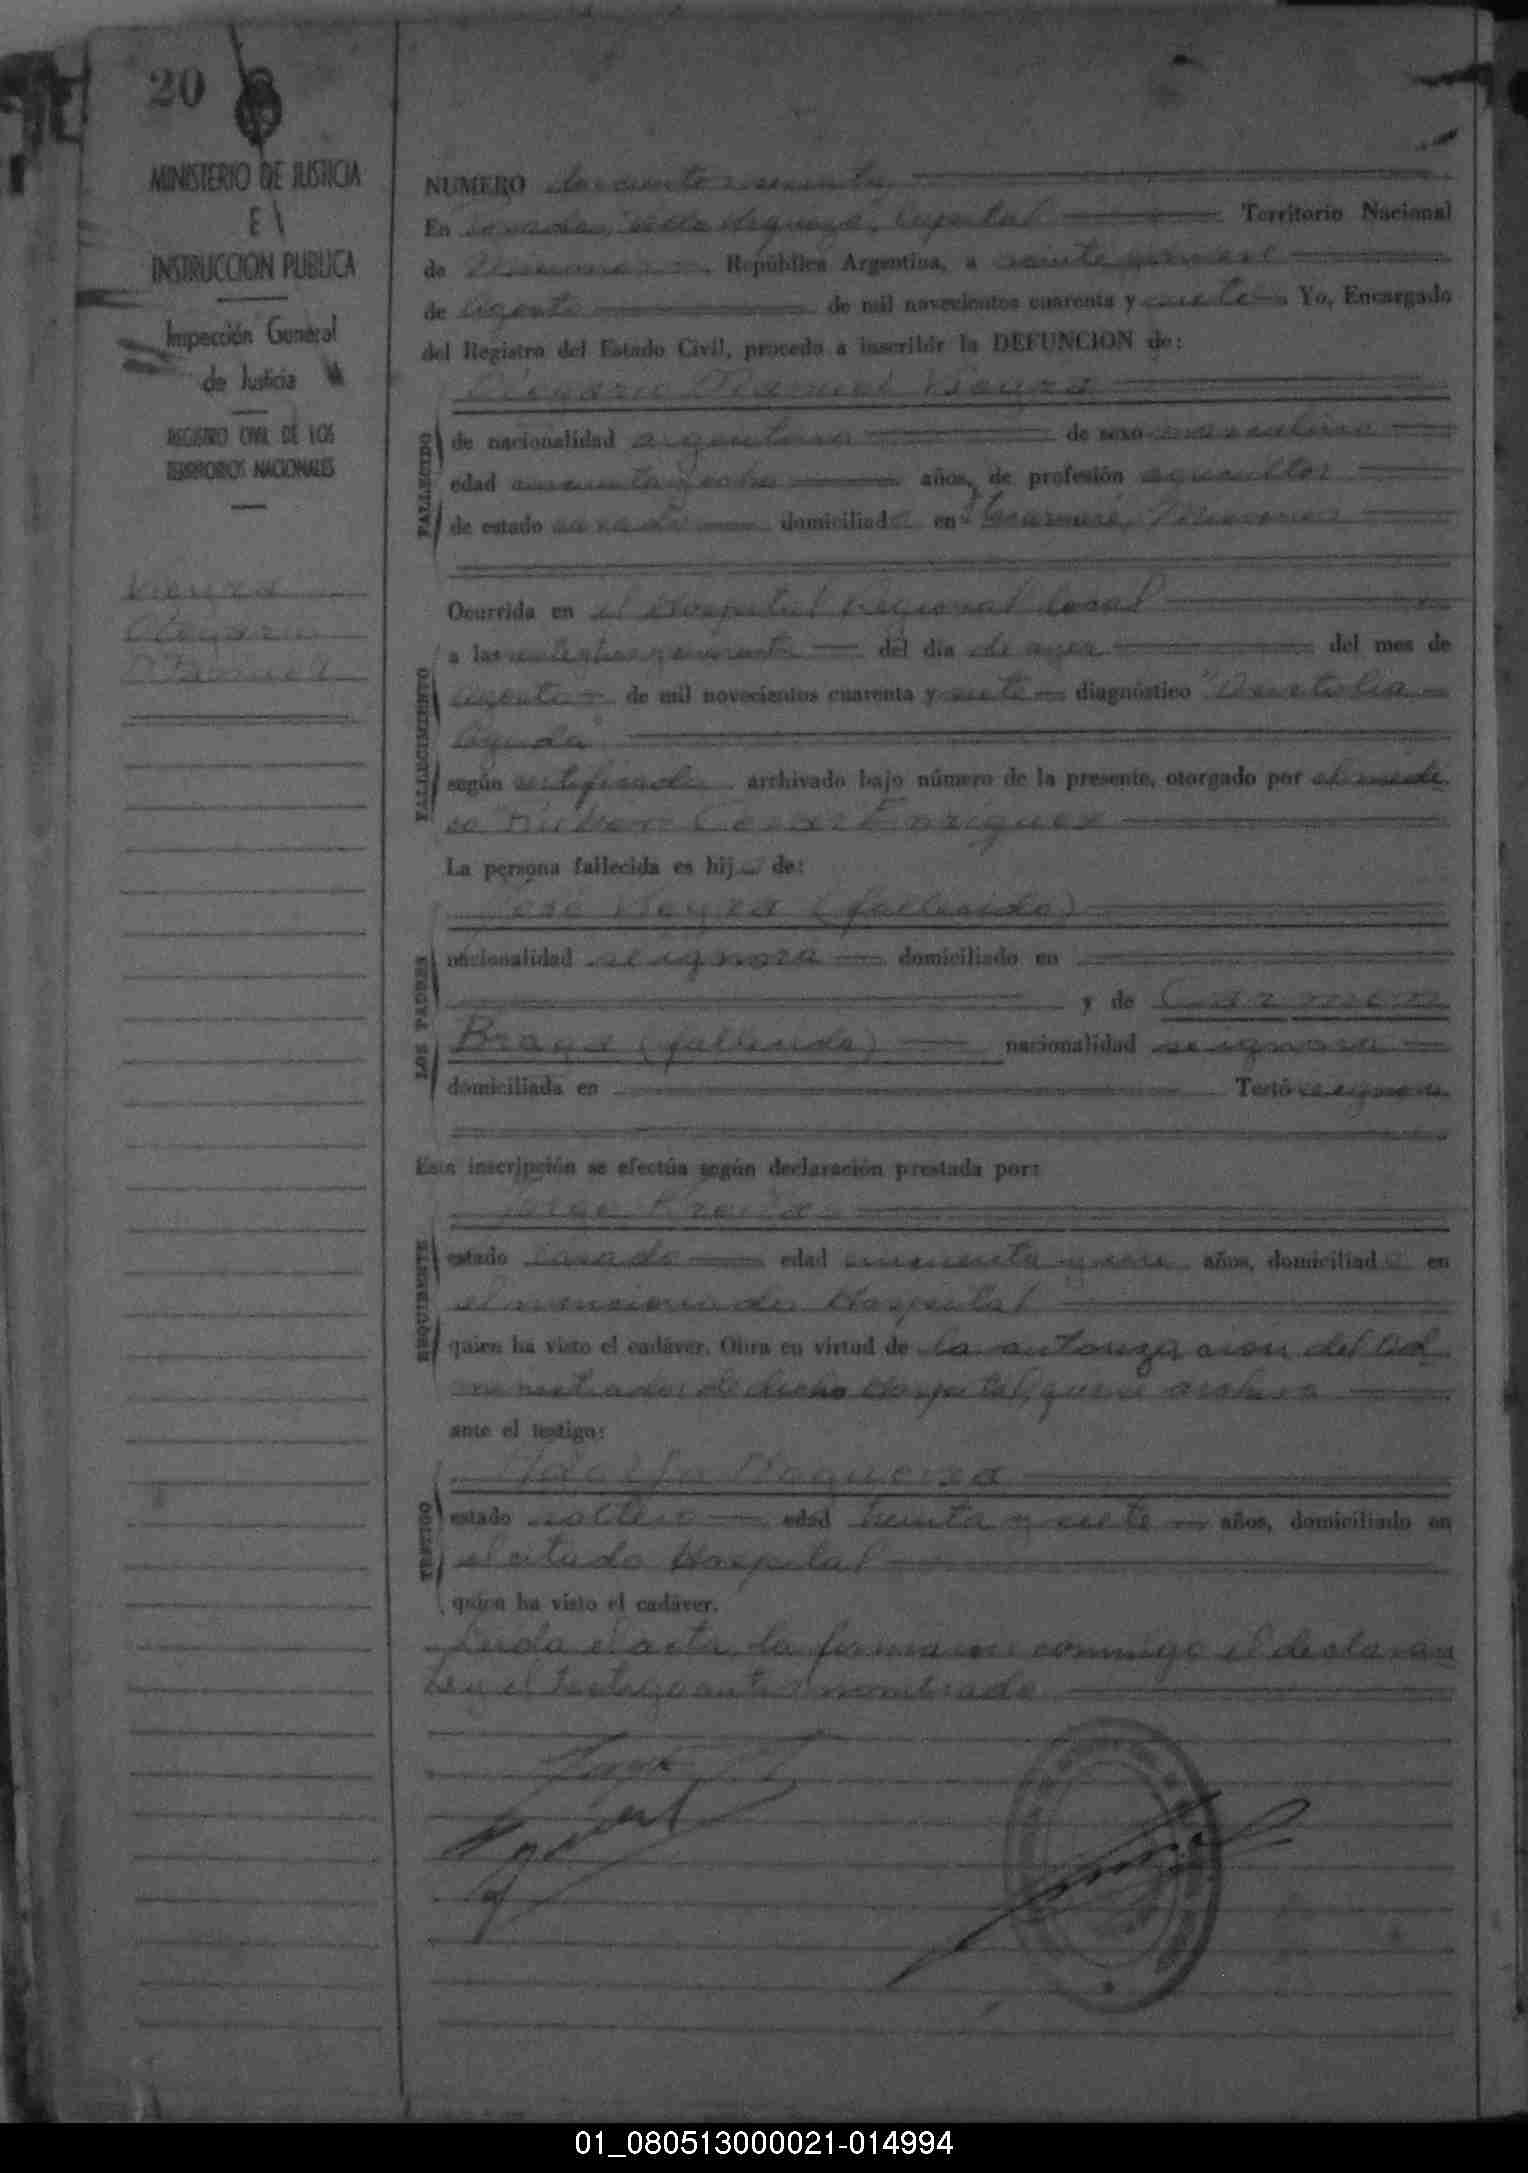 20
MINISTERIO DE JUSTICIA
E
INSTRUCCION PUBLICA
Inspección General
de Justicia
REGISTRO CIVIL DE LOS
TERRITORIOS NACIONALES
Vieyra
Olegario
Manuel
NUMERO doscientos
En Posadas, Capital Territorio Nacional
de Misiones República Argentina, a veinte
de Agosto de mil novecientos cuarenta y siete Yo, Encargado
del Registro del Estado Civil, procedo a inscribir la DEFUNCION de:
Olegario Manuel Vieyra
FALLECIDO
de nacionalidad argentina de sexo masculino
edad cincuenta y ocho años, de profesión agricultor
de estado casado domiciliado en Misiones
FALLECIMIENTO
Ocurrida en el Hospital Regional local
a las y cuarenta del día de ayer del mes de
Agosto de mil novecientos cuarenta y siete diagnóstico "Asistolia
Aguda"
según certificado archivado bajo número de la presente, otorgado por el médi-
co Rubén Cesar Enriquez
La persona fallecida es hijo de:
LOS PADRES
José Vieyra (fallecido)
nacionalidad se ignora domiciliado en
y de Carmen
Braga (fallecida) nacionalidad se ignora
domiciliada en Testó se ignora
Esta inscripción se efectúa según declaración prestada por:
REQUIRENTE
Jorge
estado casado edad cincuenta y años, domiciliado en
el mencionado Hospital
quien ha visto el cadáver. Obra en virtud de la autorización del Ad-
ministrador de dicho Hospital, que se archiva
ante el testigo:
TESTIGO
Adolfo Nogueira
estado soltero edad treinta y siete años, domiciliado en
el citado Hospital
quien ha visto el cadáver.
Leida el acta, la firmaron conmigo el declaran
te y el testigo antes nombrado
01_080513000021-014994